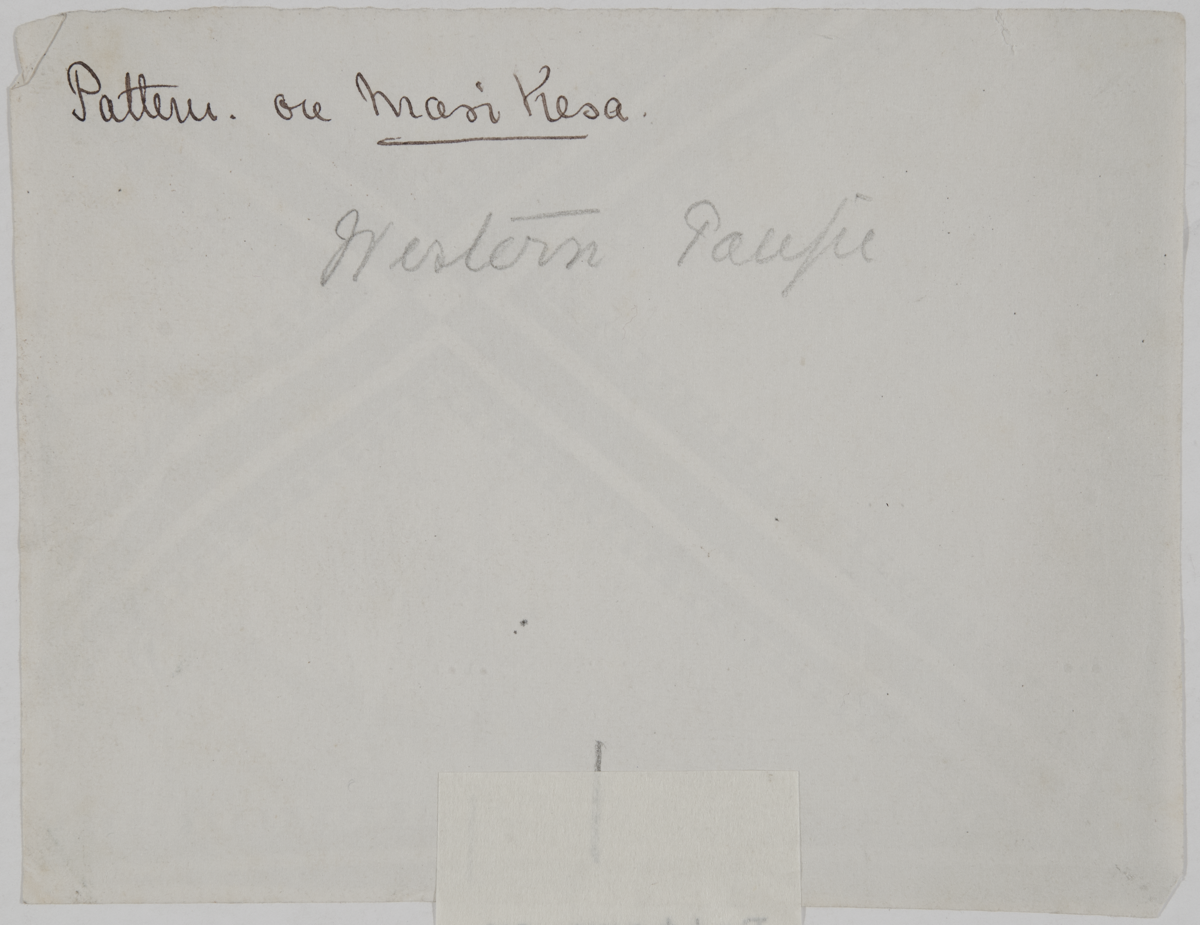 Pattern. on Masi Kesa.
Western Pacific